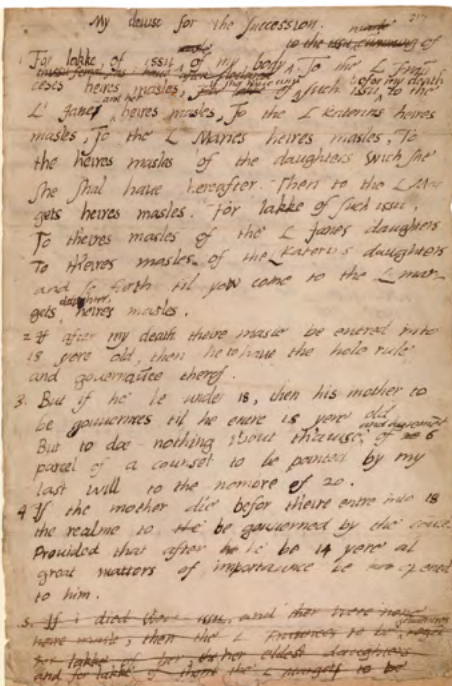 My deuise for the Succession.
1. For lakke of issu of my body To the L Fran
ceses heires masles, if she haue any such issu befor my death to the
L' Janes and her heires masles, To the L Katerins heires
masles, To the L Maries heires masles, To
the heires masles of the daughters wich she
she shal haue hereafter. Then to the L Mar
gets heires masles. For lakke of such issu,
To theires masles of the L Janes daughters
To theires masles of the L Katerins daughters
and so forth til yow come to the L mar
gets daughters heires masles.
2. If after my death theire masle be entred into
18 yere old, then he to haue the hole rule
and gouernaũce therof.
3. But if he be under 18, then his mother to
be gouuernres til he entre 18 yere old
But to doe nothing wout thauise and agreement of 6
parcel of a counsel to be pointed by my
last will to the nombre of 20.
4. If the mother die befor theire entre into 18
the realme to be gouuerned by the coũce
Prouided that after he be 14 yere al
great matters of importaunce be opened
to him.
5. If i died wout issu, and ther were none
heire masle, then the L Fraunces to be gouuernres
for lakke of her the her eldest daughters
and for lakke of them the L Margets to be